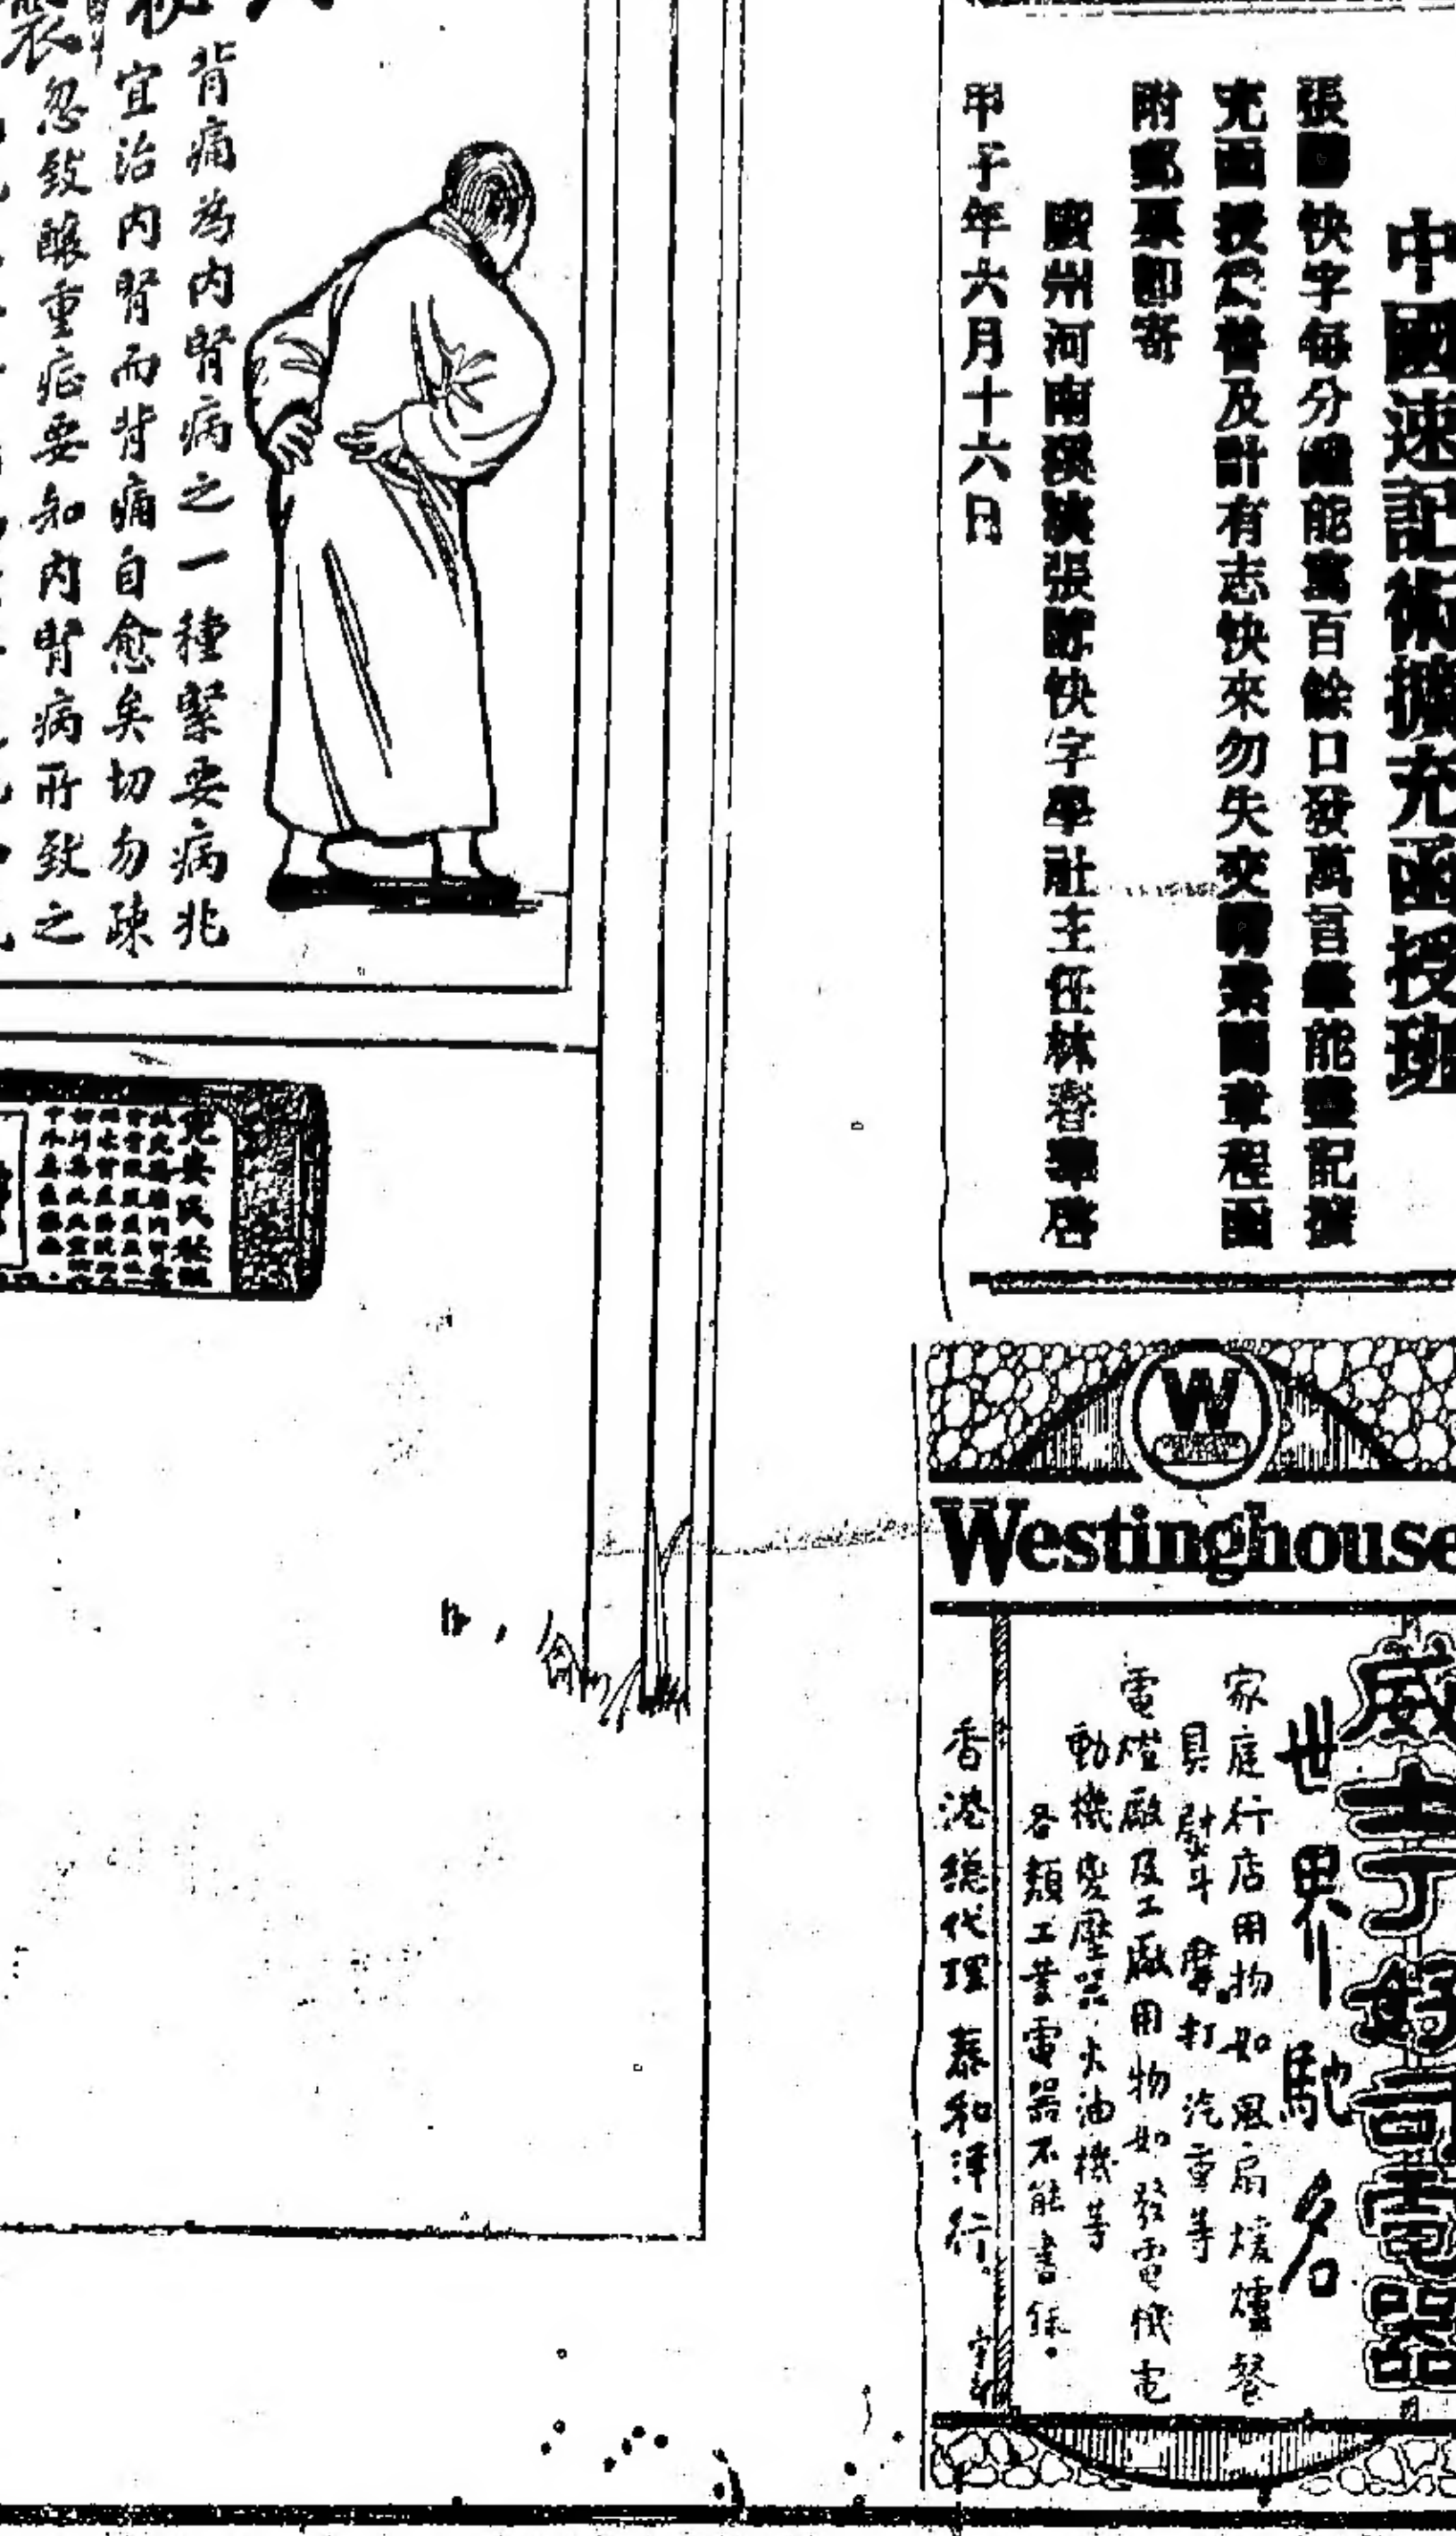 中國速記術擴充函授班
張 快字每分鐘能寫百餘口發萬言筆能盡記擴
充函授 普及計有志快來勿失交 章程函
附郵票即寄
廣州河南溪峽張 快字學社主任林春華啓
甲子年六月十六日
背痛為內腎病之一種緊要病兆
宜治內腎而背痛自愈矣切勿疎
忽致釀重症要知內腎病所致之
W
Westinghouse
威士丁好司電器
世界馳名
家庭行店用物如風扇煖爐餐
具熨斗摩打汽車等
電燈廠及工廠用物如發電機電
動機變壓器火油機等
各類工業電器不能書錄.
香港總代理 泰和洋行.